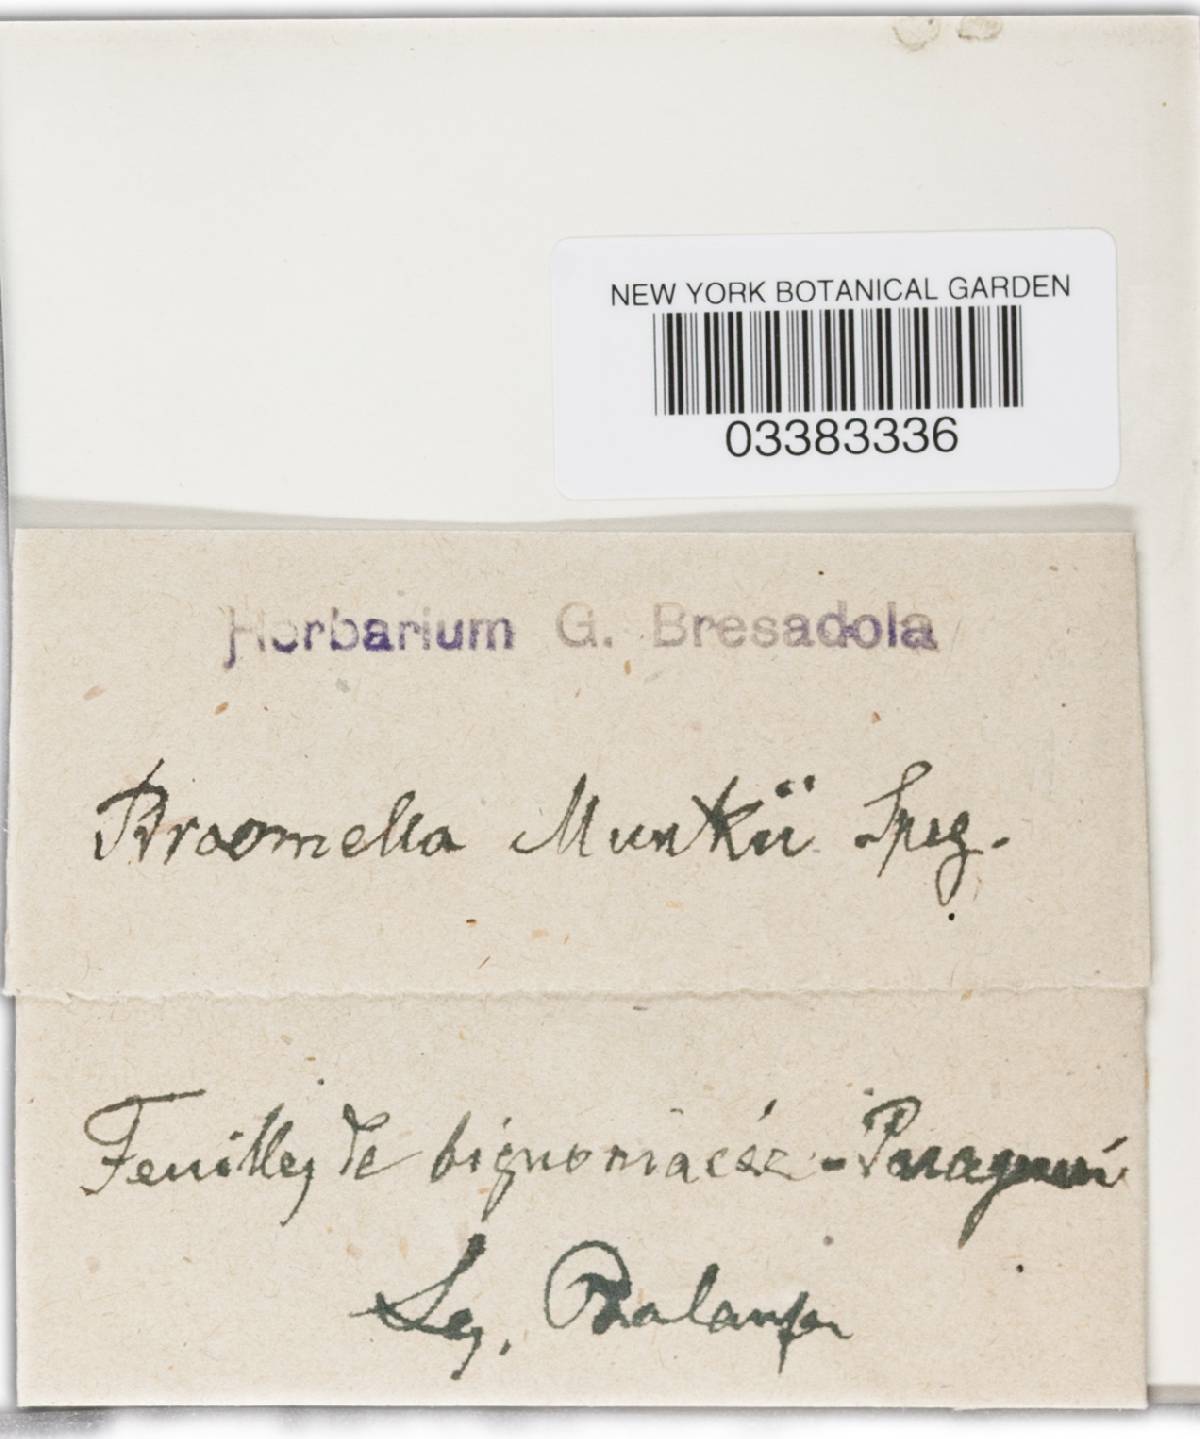 NEW YORK BOTANICAL GARDEN
03383336
Herbarium G. Bresadola
Broomella Munkii Speg.
Feuilles de bignoniacée - Paraguai
Leg. Balansa